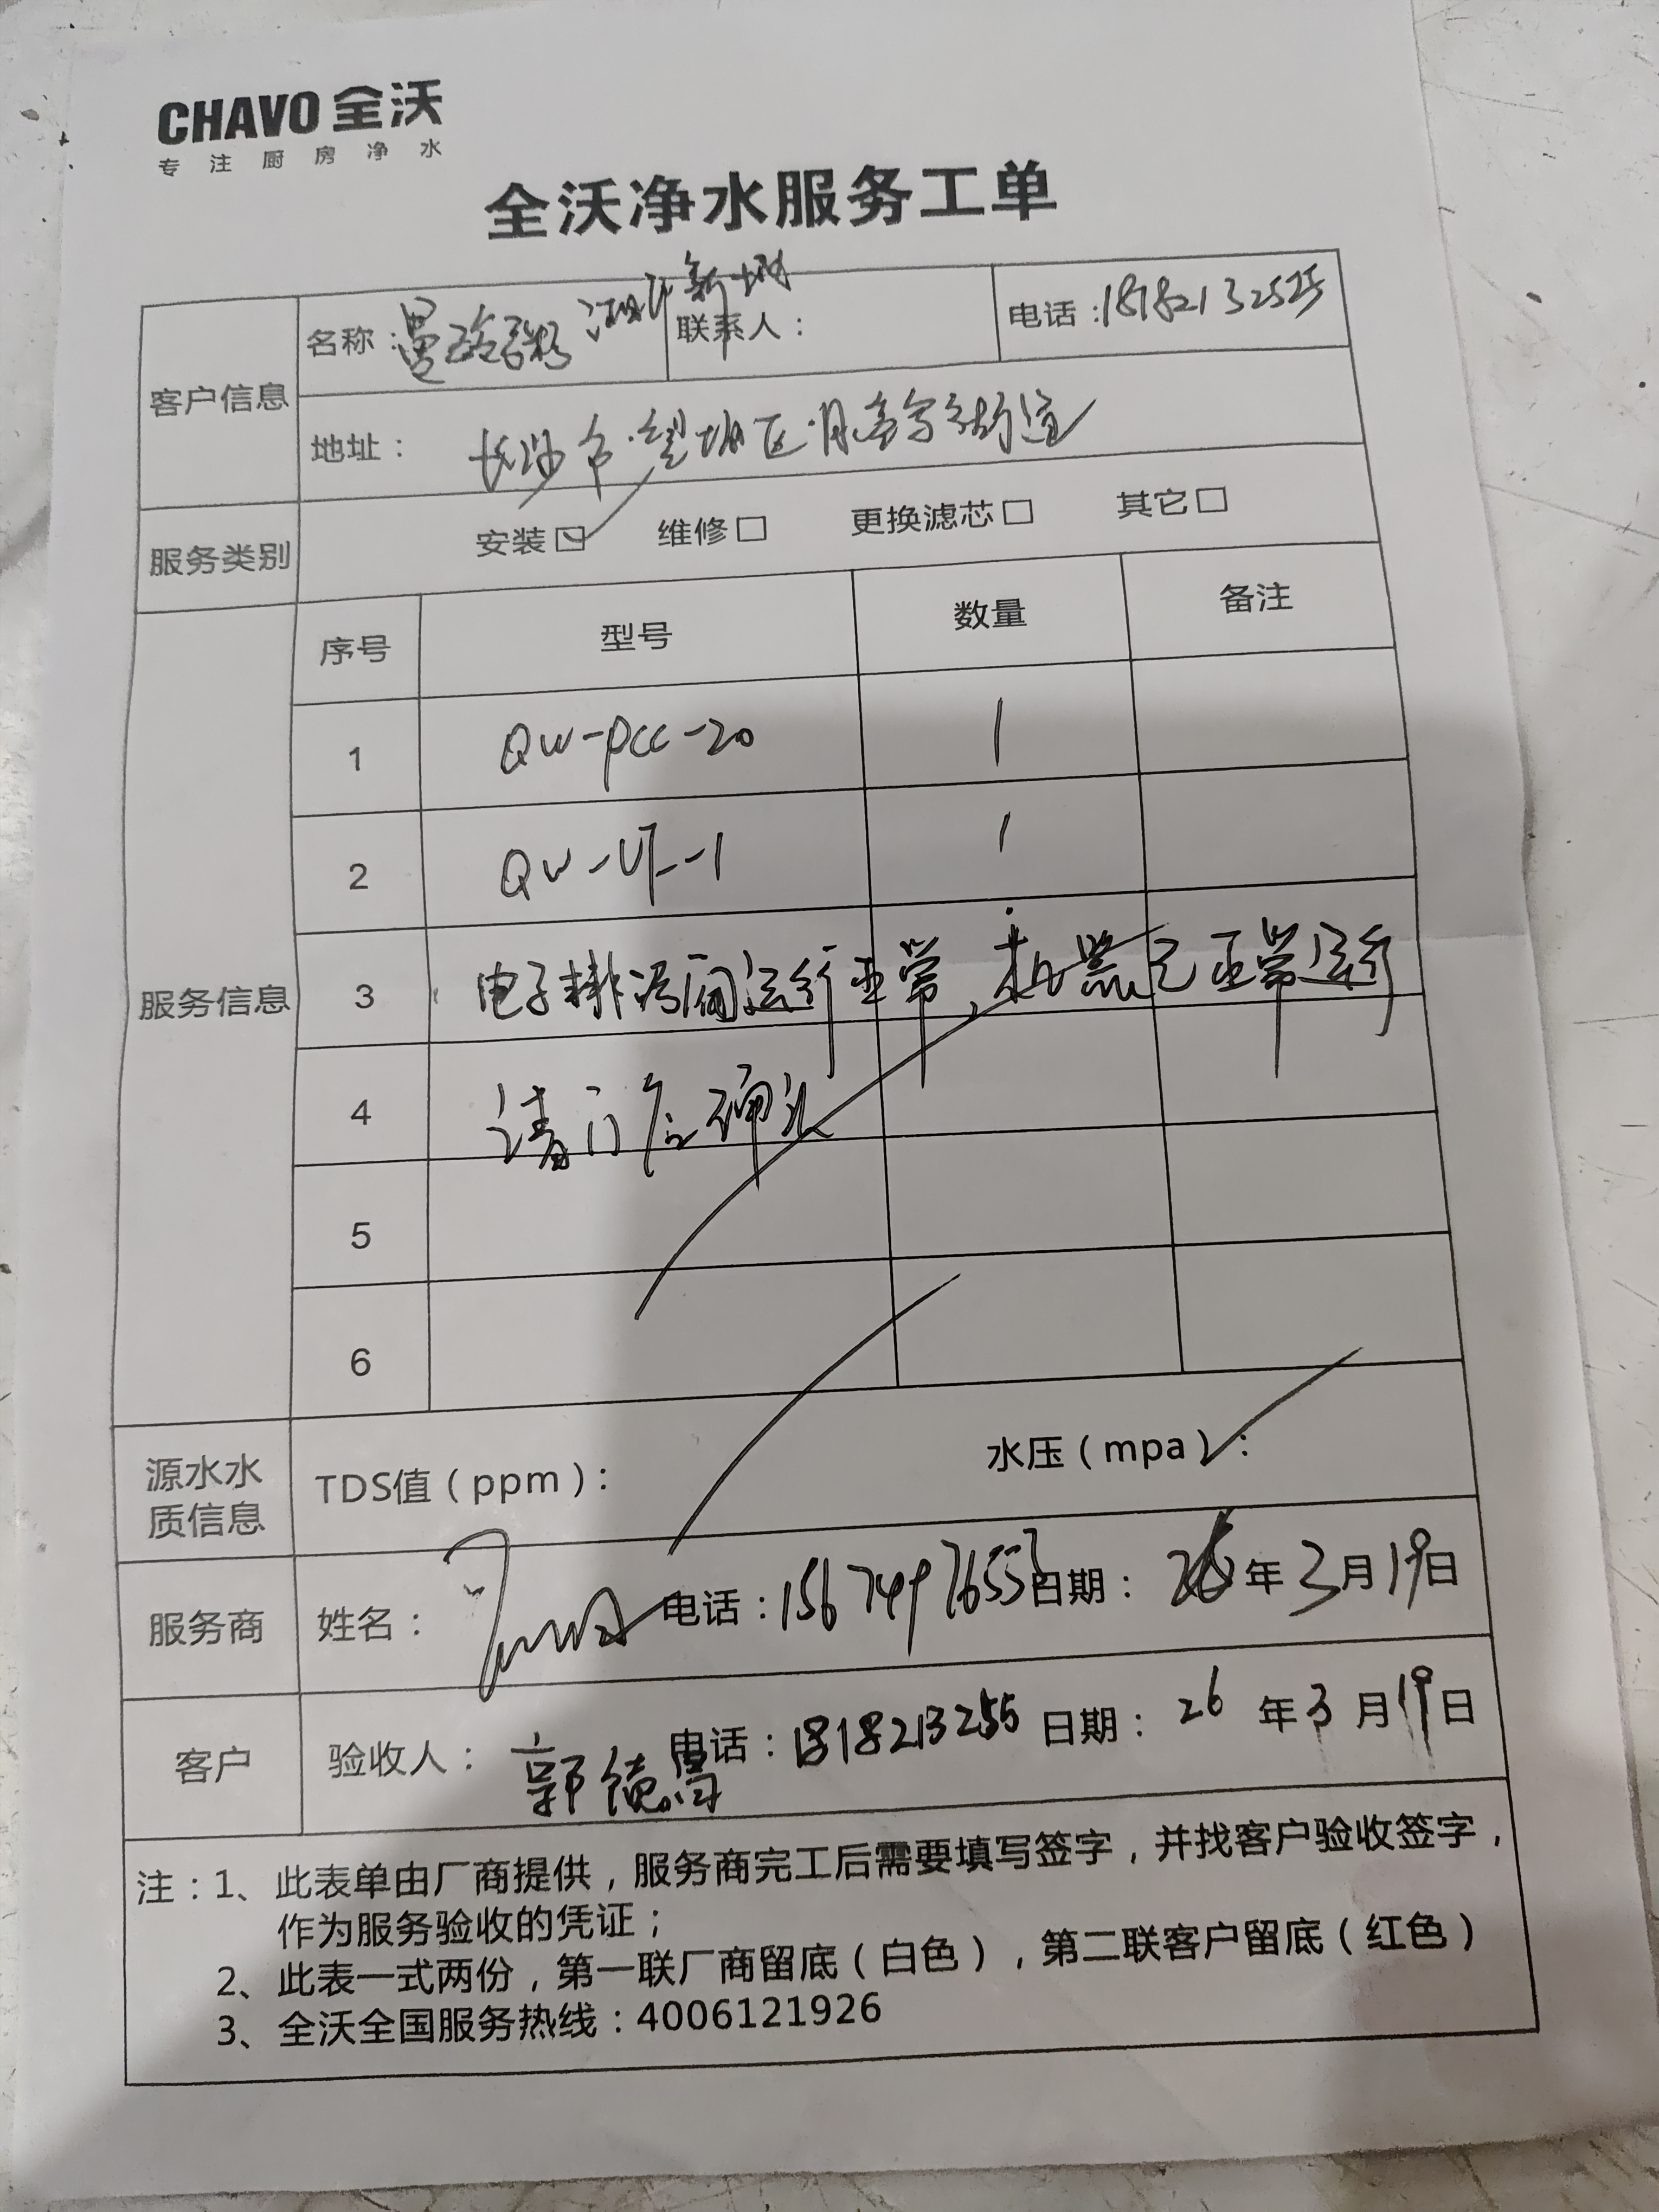 CHAVO 全沃
专注厨房净水
全沃净水服务工单
客户信息
名称：曼玲粥 新城
联系人：
电话：
地址：长沙市·望城区·月亮岛街道
服务类别
安装☑ 维修□ 更换滤芯□ 其它□
服务信息
序号 型号 数量 备注
1 QW-PCC-20 1
2 QW-UF-1 1
3 电子排污阀运行正常，机器已正常运行
4 请门店确认
5
6
源水水质信息
TDS值（ppm）： 水压（mpa）：
服务商
姓名： 电话：15674976553 日期：26年3月19日
客户
验收人：郭德 电话：18182132555 日期：26年3月19日
注：1、此表单由厂商提供，服务商完工后需要填写签字，并找客户验收签字，
作为服务验收的凭证；
2、此表一式两份，第一联厂商留底（白色），第二联客户留底（红色）
3、全沃全国服务热线：4006121926